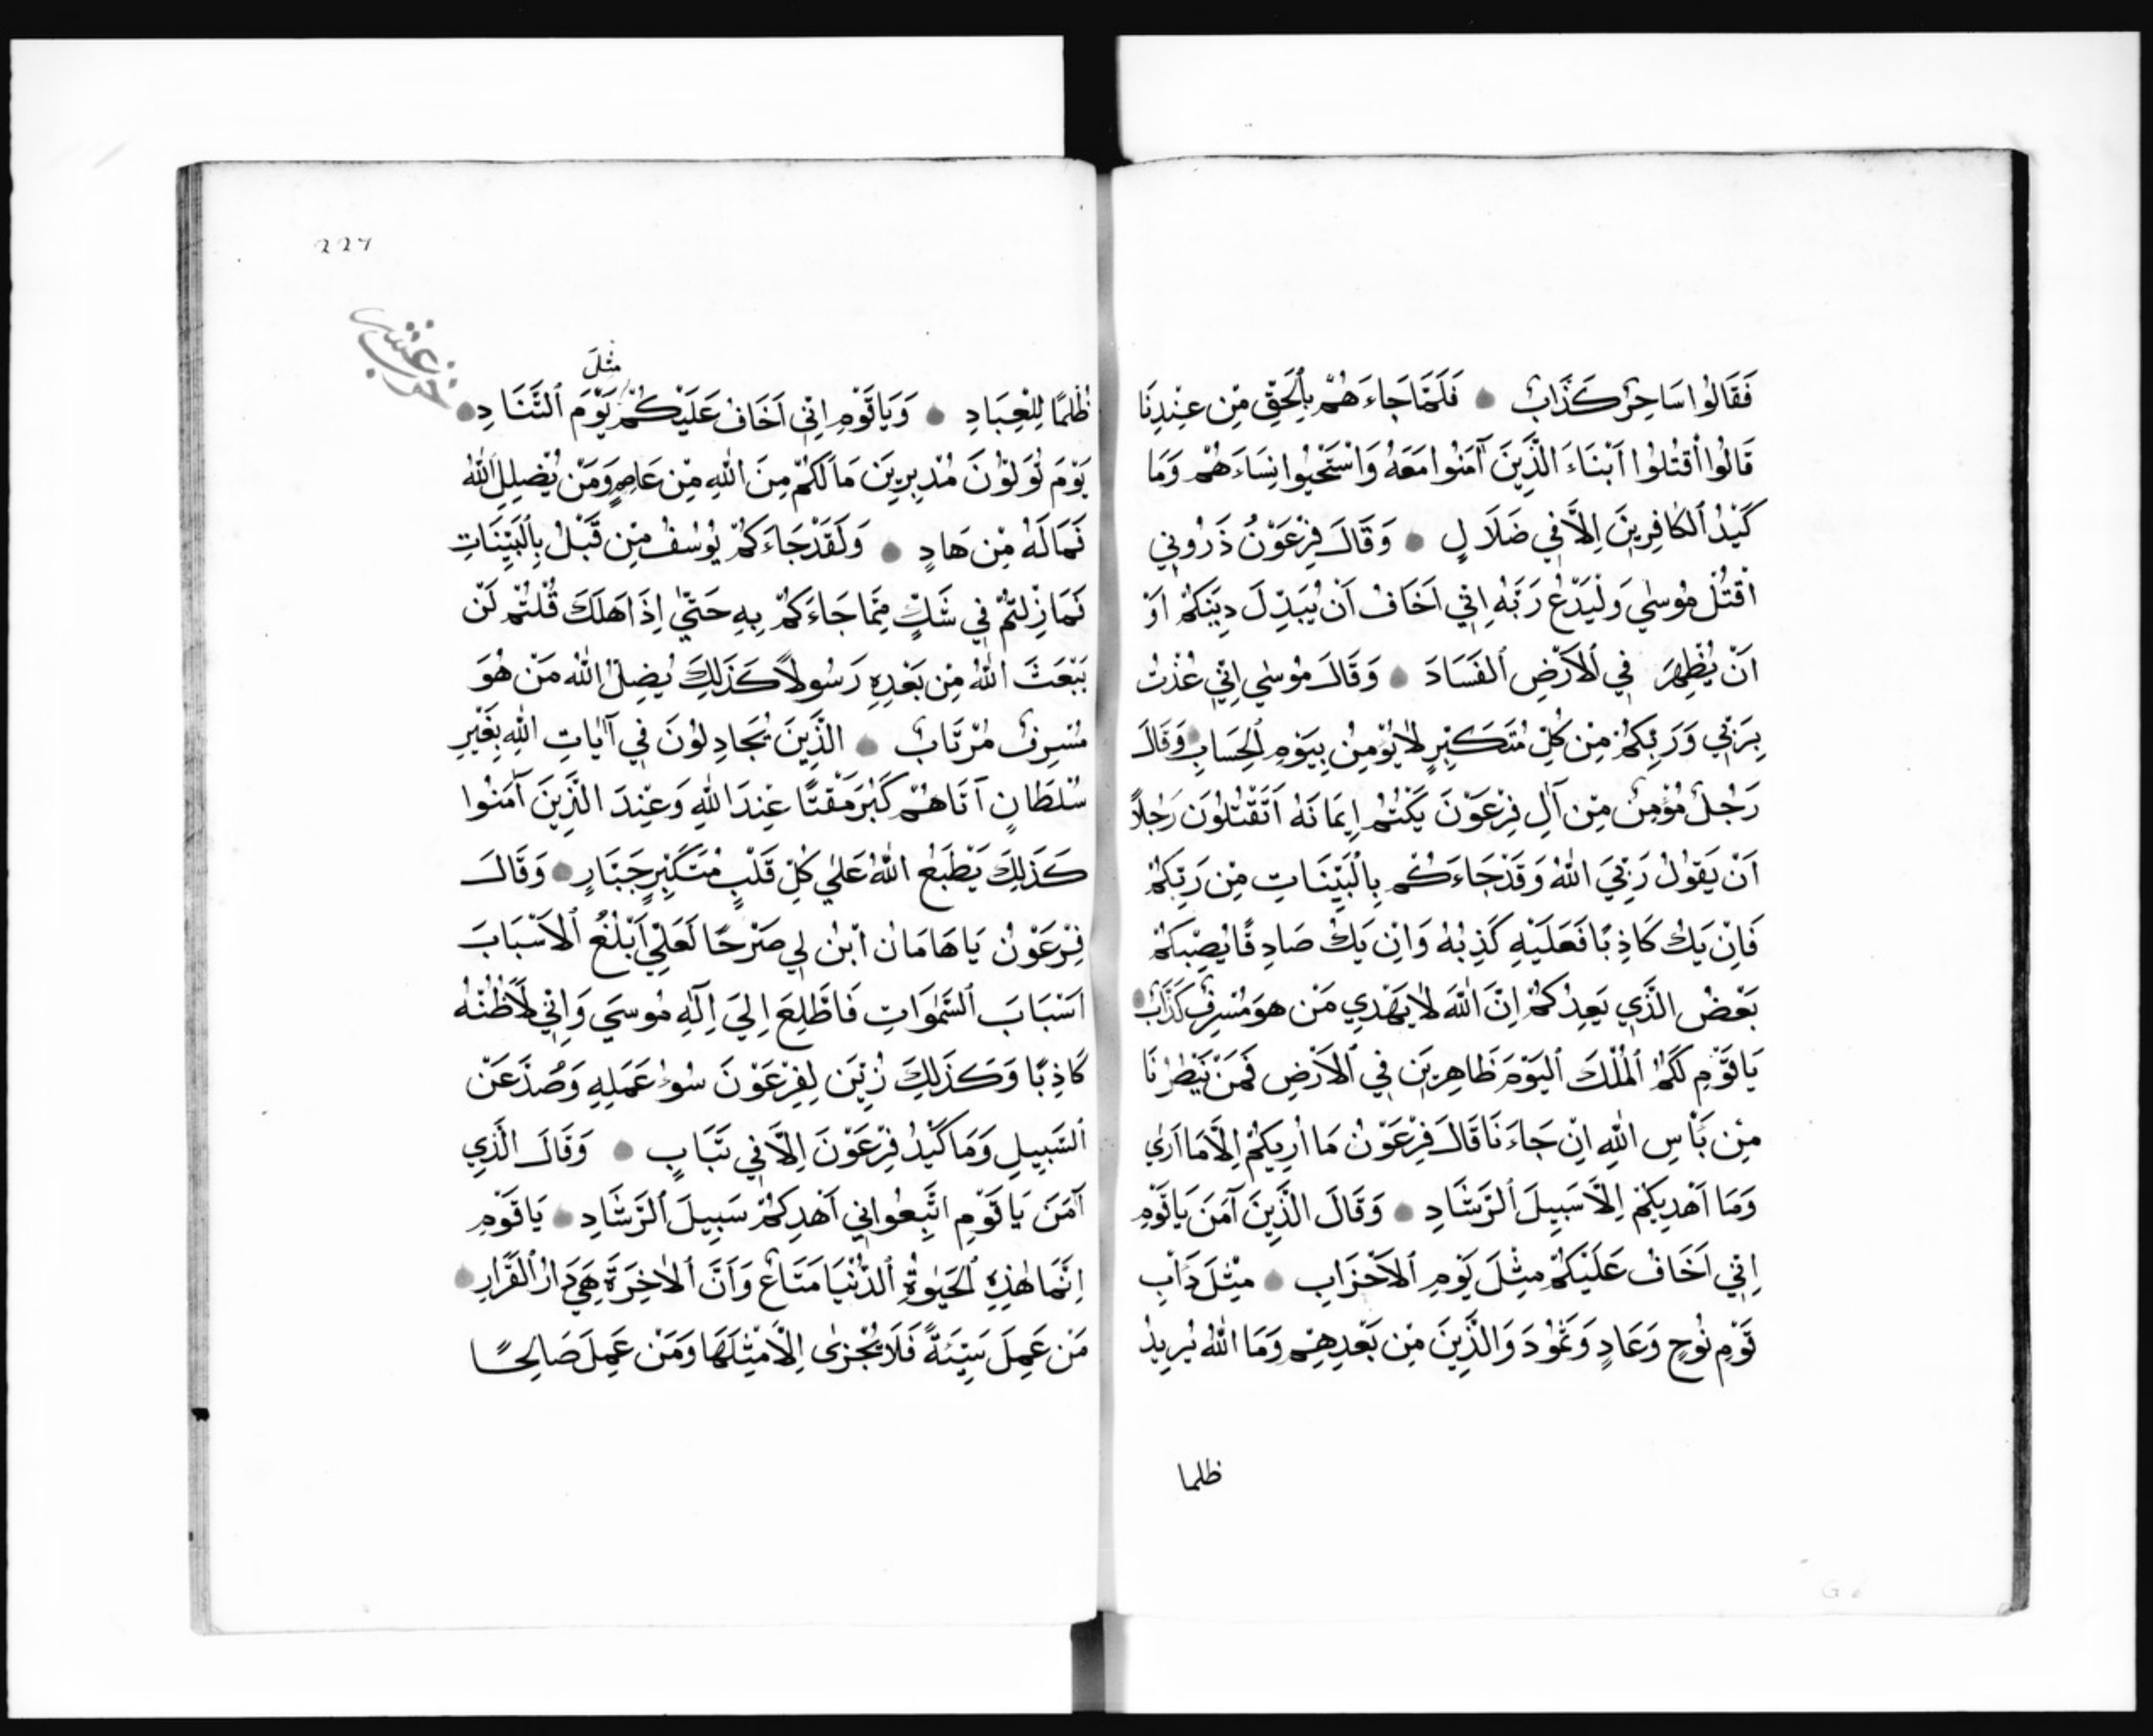 فَقَالُوا سَاحِرٌ كَذَّابٌ فَلَمَّا جَاءَهُمْ بِالْحَقِّ مِن عِنْدِنَا
قَالُوا اقْتُلُوا اَبْنَاءَ الَّذِينَ آمَنُوا مَعَهُ وَاسْتَحْيُوا نِسَاءَهُمْ وَمَا
كَيْدُ الكَافِرِينَ اِلَّا فِي ضَلَالٍ وَقَالَ فِرْعَوْنُ ذَرُونِي
اَقْتُلْ مُوسٰي وَلْيَدْعُ رَبَّهُ اِنِّي اَخَافُ اَنْ يُبَدِّلَ دِينَكُمْ اَوْ
اَنْ يُظْهِرَ فِي الاَرْضِ الفَسَادَ وَقَالَ مُوسٰي اِنِّي عُذْتُ
بِرَبِّي وَرَبِّكُمْ مِن كُلِّ مُتَكَبِّرٍ لَا يُؤْمِنُ بِيَوْمِ الحِسَابِ وَقَالَ
رَجُلٌ مُؤْمِنٌ مِن آلِ فِرْعَوْنَ يَكْتُمُ اِيمَانَهُ اَتَقْتُلُونَ رَجُلاً
اَنْ يَقُولَ رَبِّيَ اللهُ وَقَدْ جَاءَكُم بِالْبَيِّنَاتِ مِن رَبِّكُمْ
فَاِنْ يَكُ كَاذِبًا فَعَلَيْهِ كَذِبُهُ وَاِن يَكُ صَادِقًا يُصِبْكُمْ
بَعْضُ الَّذِي يَعِدُكُمْ اِنَّ اللهَ لَا يَهْدِي مَن هُوَ مُسْرِفٌ كَذَّابٌ
يَا قَوْمِ لَكُمُ المُلْكَ اليَوْمَ ظَاهِرِيَن فِي الاَرْضِ فَمَنْ يَنْصُرُنَا
مِن بَأْسِ اللهِ اِنْ جَاءَنَا قَالَ فِرْعَوْنُ مَا اُرِيكُمْ اِلَّا مَا اَرٰي
وَمَا اَهْدِيكُمْ اِلَّا سَبِيلَ الرَّشَادِ وَقَالَ الَّذِينَ آمَنَ يَا قَوْمِ
اِنِّي اَخَافُ عَلَيْكُمْ مِثْلَ يَوْمِ الاَحْزَابِ مِثْلَ دَأْبِ
قَوْمِ نُوحٍ وَعَادٍ وَثَمُودَ وَالَّذِينَ مِن بَعْدِهِمْ وَمَا اللهُ يُرِيدُ
ظلما
227
حزب عشر
مثل
ظُلْمًا لِلْعِبَادِ وَيَا قَوْمِ اِنِّي اَخَافُ عَلَيْكُمْ يَوْمَ التَّنَادِ
يَوْمَ تُوَلُّونَ مُدْبِرِيَن مَا لَكُمْ مِنَ اللهِ مِن عَاصِمٍ وَمَنْ يُضْلِلِ اللهُ
فَمَا لَهُ مِن هَادٍ وَلَقَدْ جَاءَكُمْ يُوسُفُ مِن قَبْلُ بِالْبَيِّنَاتِ
فَمَا زِلْتُمْ فِي شَكٍّ مِمَّا جَاءَكُمْ بِهِ حَتّٰي اِذَا هَلَكَ قُلْتُمْ لَنْ
يَبْعَثَ اللهُ مِن بَعْدِهِ رَسُولاً كَذَلِكَ يُضِلُّ اللهُ مَنْ هُوَ
مُسْرِفٌ مُرْتَابٌ الَّذِينَ يُجَادِلُونَ فِي آيَاتِ اللهِ بِغَيْرِ
سُلْطَانٍ آتَاهُمْ كَبُرَ مَقْتًا عِنْدَ اللهِ وَعِنْدَ الَّذِينَ آمَنُوا
كَذَلِكَ يَطْبَعُ اللهُ عَلٰي كُلِّ قَلْبٍ مُتَكَبِّرٍ جَبَّارٍ وَقَالَ
فِرْعَوْنُ يَا هَامَانُ ابْنِ لِي صَرْحًا لَعَلِّي اَبْلُغُ الاَسْبَابَ
اَسْبَابَ السَّمٰوَاتِ فَاَطَّلِعَ اِلَيَ اِلٰهِ مُوسَي وَاِنِّي لَاَظُنُّهُ
كَاذِبًا وَكَذَلِكَ زُيِّنَ لِفِرْعَوْنَ سُوءُ عَمَلِهِ وَصُدَّ عَنْ
السَّبِيلِ وَمَا كَيْدُ فِرْعَوْنَ اِلَّا فِي تَبَابٍ وَقَالَ الَّذِي
آمَنَ يَا قَوْمِ اتَّبِعُوانِي اَهْدِكُمْ سَبِيلَ الرَّشَادِ يَا قَوْمِ
اِنَّمَا هٰذِهِ الحَيٰوةُ الدُّنْيَا مَتَاعٌ وَاَنَّ الاٰخِرَةَ هِيَ دَارُ القَرَارِ
مَن عَمِلَ سَيِّئَةً فَلَا يُجْزٰى اِلَّا مِثْلَهَا وَمَنْ عَمِلَ صَالِحًا